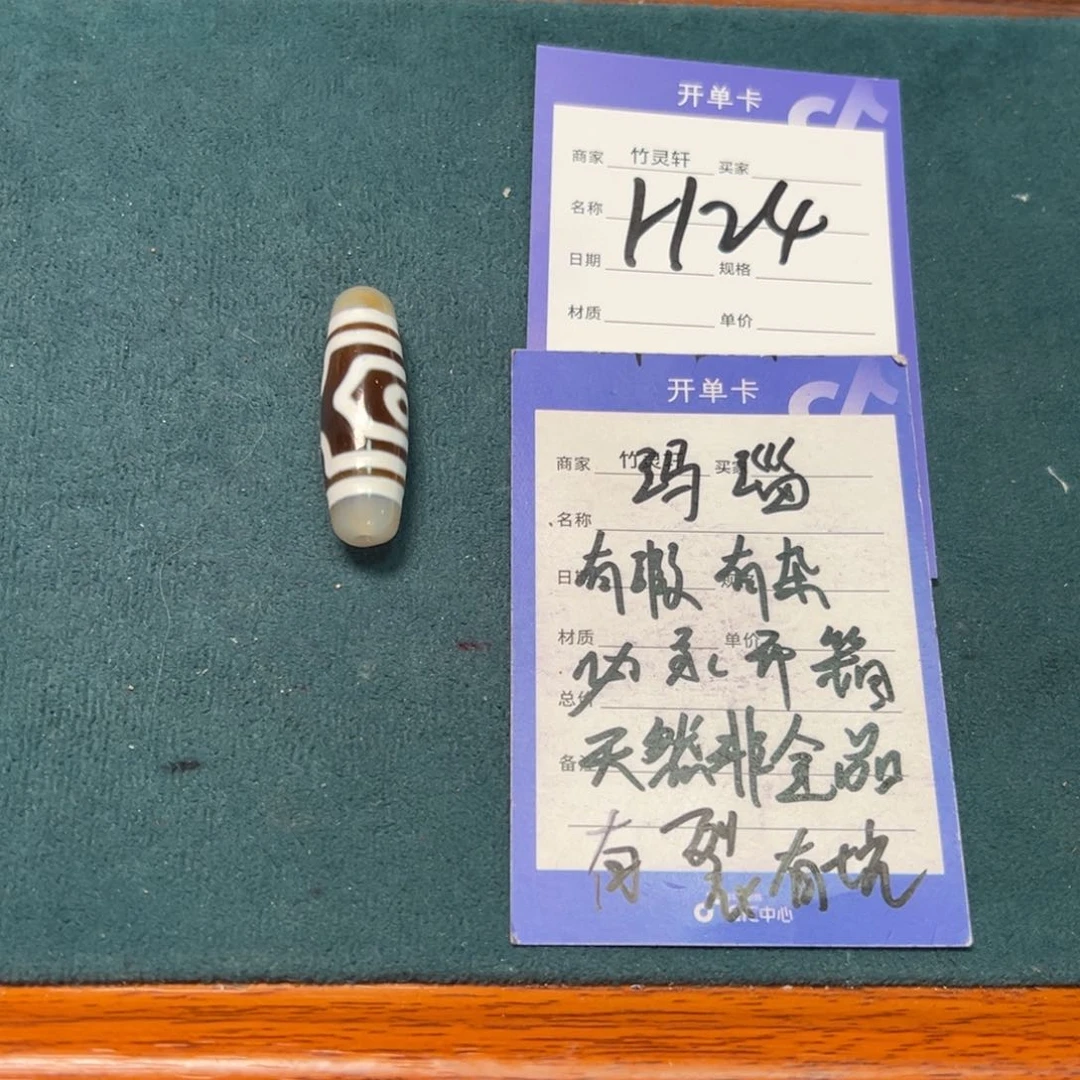 开单卡
商家 竹灵轩 买家
名称 H24
日期 规格
材质 单价
开单卡
商家 竹灵轩 买家
玛瑙
名称
日 有瑕 有杂
材质 单价
功 开箱
总价
备注 天然非全品
有裂 有坑
中心